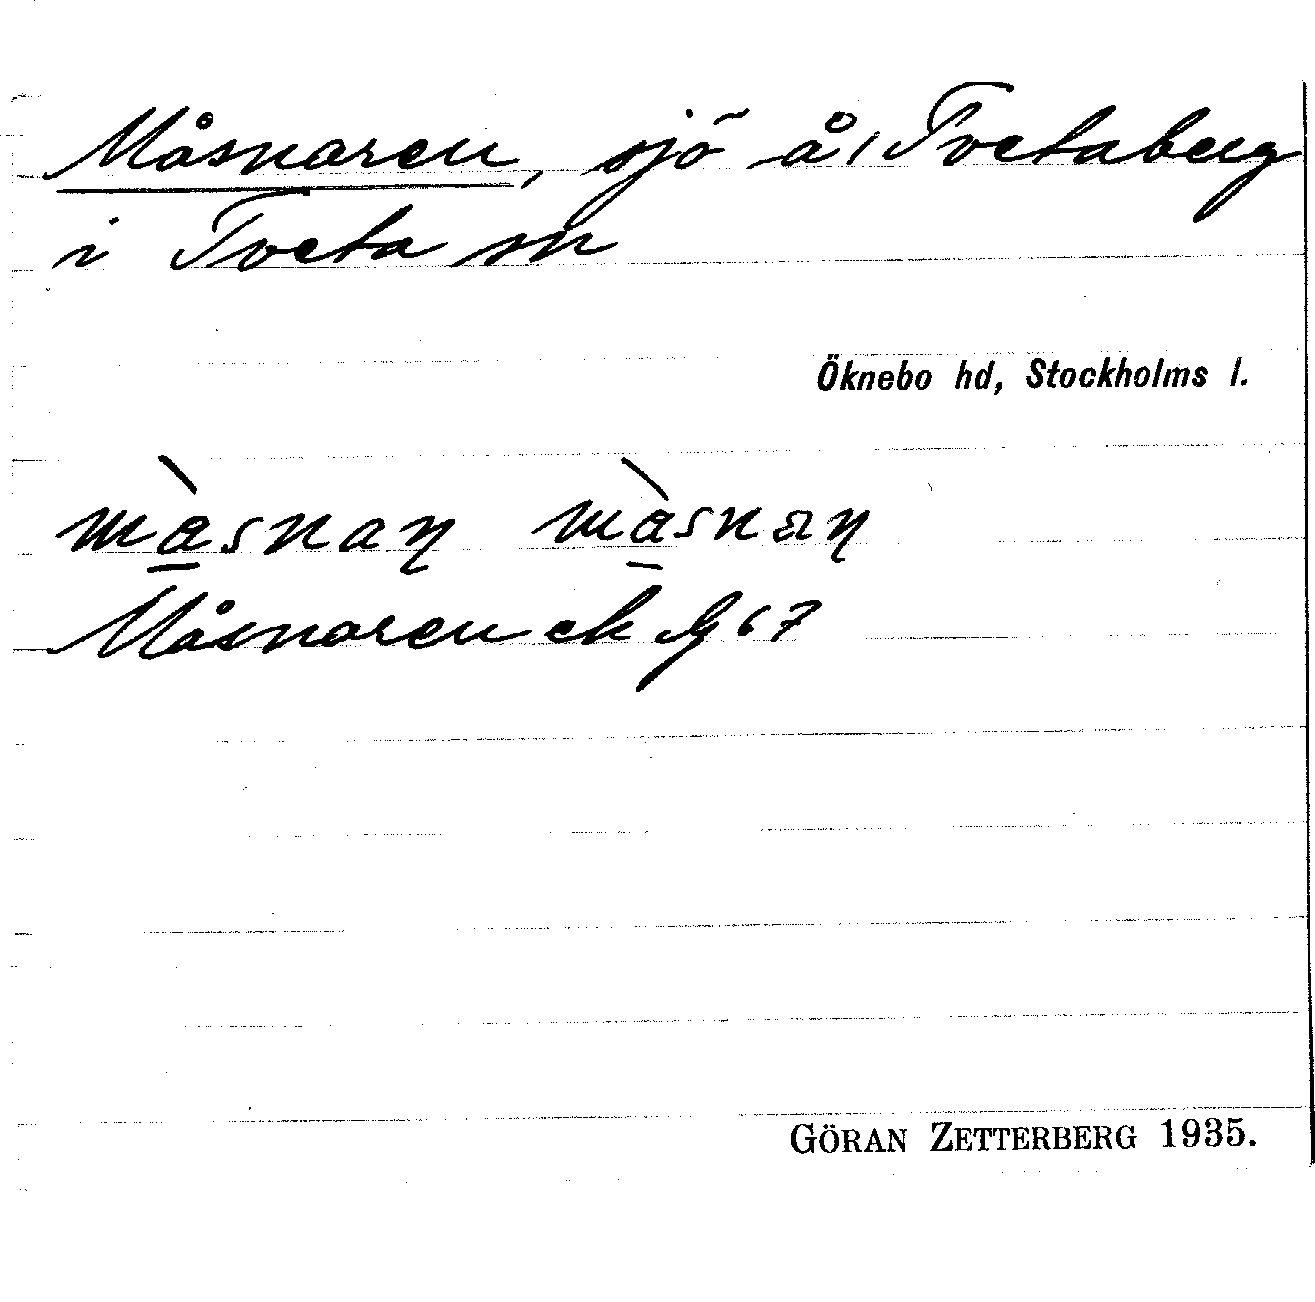 Måsnaren, sjö å Tvetaberg
i Tveta sn
Öknebo hd, Stockholms l.
Måsnaren ek
GÖRAN ZETTERBERG 1935.